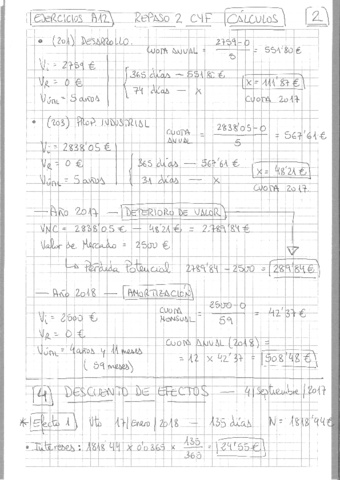 EJERCICIOS A12 REPASO 2 CYF CÁLCULOS 2
• (201) DESARROLLO.
CUOTA ANUAL = 2759-0 / 5 = 551'80 €
Vi = 2759 €
VR = 0 €
Vútil = 5 años
365 días — 551'80 €
74 días — x
x = 111'87 €
CUOTA 2017
• (203) PROP. INDUSTRIAL
CUOTA ANUAL = 2838'05-0 / 5 = 567'61 €
Vi = 2838'05 €
VR = 0 €
Vútil = 5 años
365 días — 567'61 €
31 días — x
x = 48'21 €
CUOTA 2017.
— AÑO 2017 — DETERIORO DE VALOR
VNC = 2838'05 € — 48'21 € = 2.789'84 €
Valor de Mercado = 2500 €
↳ Pérdida Potencial 2789'84 - 2500 = 289'84 €
— AÑO 2018 — AMORTIZACIÓN
Vi = 2500 €
CUOTA MENSUAL = 2500-0 / 59 = 42'37 €
VR = 0 €
Vútil = 4 años y 11 meses
(59 meses)
CUOTA ANUAL (2018) =
= 12 x 42'37 = 508'48 €
4 DESCUENTO DE EFECTOS — 4/Septiembre/2017
* Efecto 1 Vto 17/Enero/2018 — 135 días N = 1818'94 €
• Intereses: 1818'44 x 0'0365 x 135 / 365 = 24'55 €